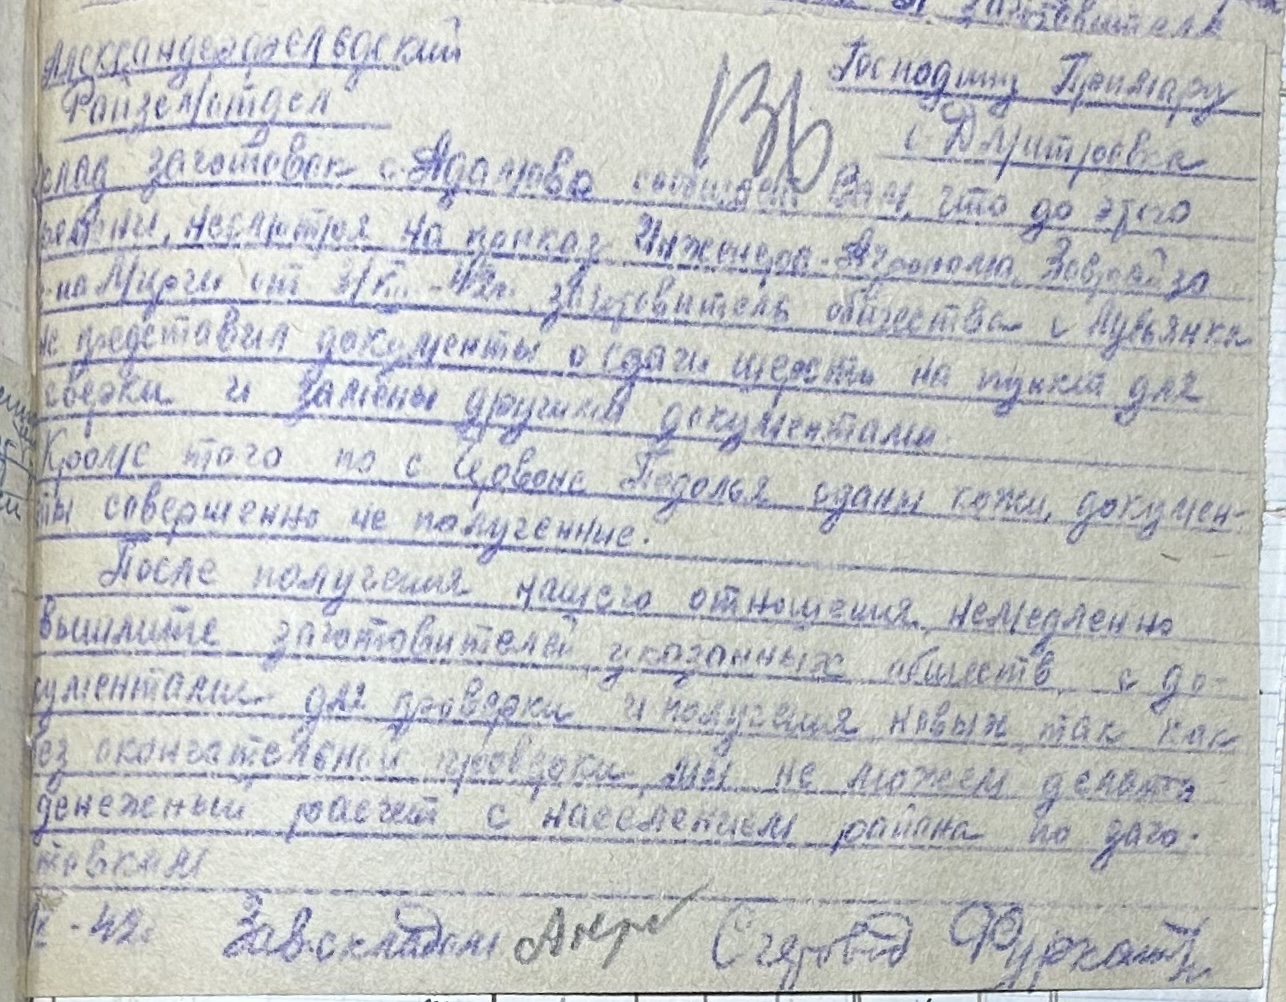 заготовителя
Александерфельдский
Райземотдел
Господину Примару
с. Дмитровка
Склад заготовок с. Адамовка сообщает Вам, что до этого
времени, несмотря на приказ Инженера-Агронома Заврайзо
г-на Мирги от 42г. заготовитель общества с. Лубянка
не представил документы о сдачи шерсти на пункт для
сверки и замены другими документами.
Кроме того по с. Червоне Подолья сданы кожи, докумен-
ты совершенно не полученние.
После получения нашего отношения, немедленно
вышлите заготовителей указанных обществ с до-
кументами для проверки и получения новых, так как
без окончательной проверки мы не можем делать
денежный расчет с населением района по заго-
товкам
-42г. Зав.складом Счетовод